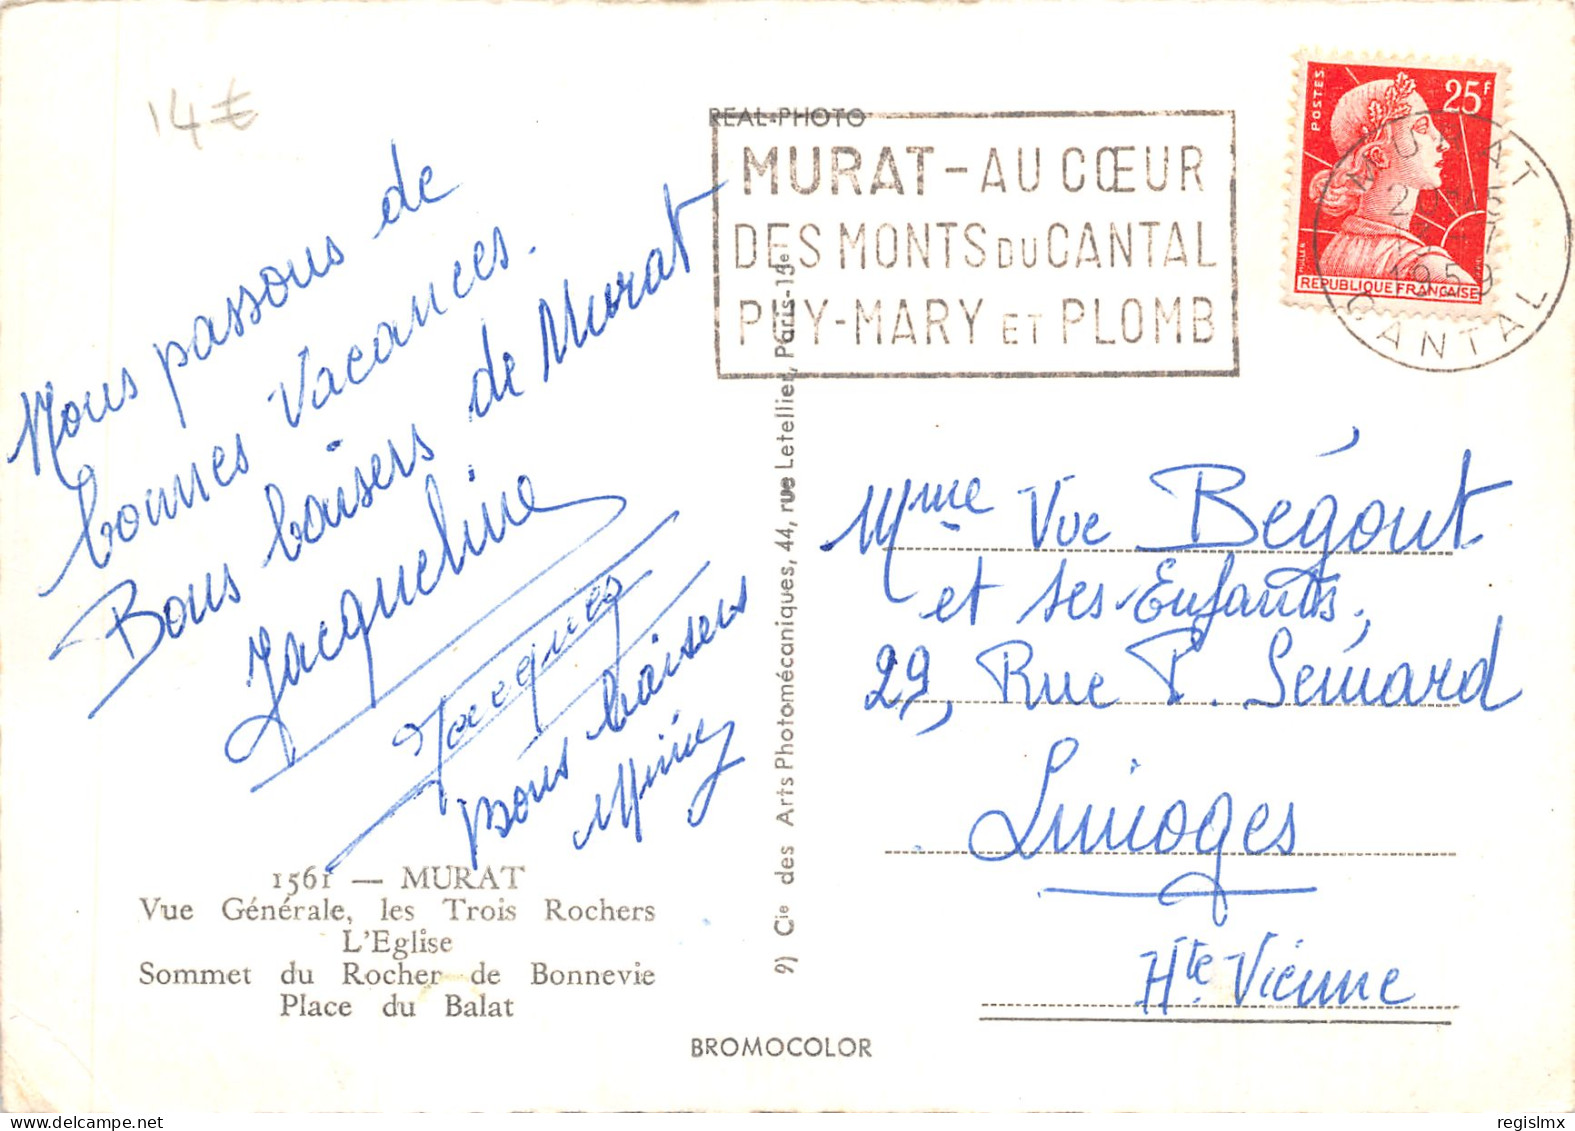 14€
Nous passons de
bonnes Vacances.
Bons baisers de Murat
Jacqueline
Jacques
Bons baisers
Mimi
1561 — MURAT
Vue Générale, les Trois Rochers
L'Eglise
Sommet du Rocher de Bonnevie
Place du Balat
REAL-PHOTO
MURAT - AU CŒUR
DES MONTS DU CANTAL
PUY-MARY ET PLOMB
9) Cie des Arts Photomécaniques, 44, rue Letellier, Paris-15e
BROMOCOLOR
POSTES
25F
MULLER
REPUBLIQUE FRANÇAISE
MURAT
1959
CANTAL
Mme Vve Bégout
et ses Enfants,
29, Rue P. Semard
Limoges
Hte Vienne
regislmx